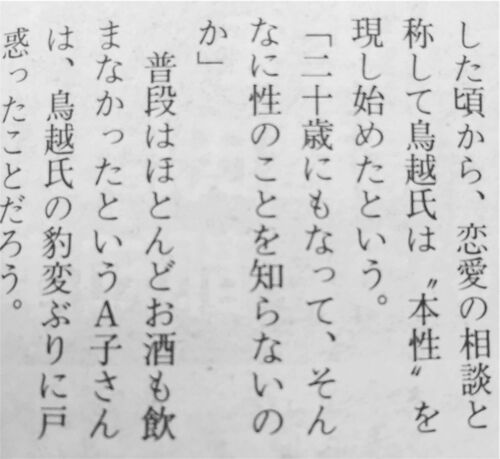 した頃から、恋愛の相談と
称して鳥越氏は〝本性〟を
現し始めたという。
「二十歳にもなって、そん
なに性のことを知らないの
か」
普段はほとんどお酒も飲
まなかったというA子さん
は、鳥越氏の豹変ぶりに戸
惑ったことだろう。